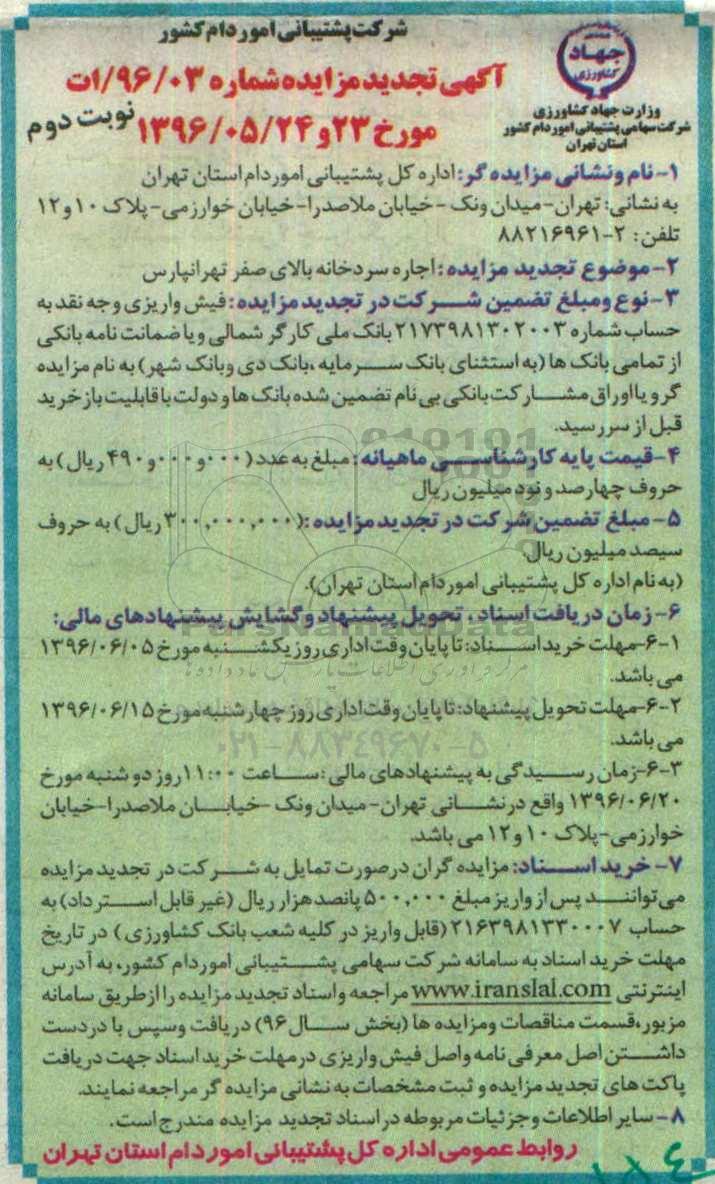 شرکت پشتیبانی امور دام کشور
جهاد
کشاورزی
وزارت جهاد کشاورزی
شرکت سهامی پشتیبانی امور دام کشور
استان تهران
آگهی تجدید مزایده شماره ۹۶/۰۳/ات
مورخ ۲۳ و ۱۳۹۶/۰۵/۲۴
نوبت دوم
۱- نام و نشانی مزایده گر: اداره کل پشتیبانی امور دام استان تهران
به نشانی: تهران- میدان ونک - خیابان ملاصدرا- خیابان خوارزمی- پلاک ۱۰ و ۱۲
تلفن: ۲-۸۸۲۱۶۹۶۱
۲- موضوع تجدید مزایده: اجاره سردخانه بالای صفر تهرانپارس
۳- نوع و مبلغ تضمین شرکت در تجدید مزایده: فیش واریزی وجه نقد به
حساب شماره ۲۱۷۳۹۸۱۳۰۲۰۰۳ بانک ملی کارگر شمالی و یا ضمانت نامه بانکی
از تمامی بانک ها (به استثنای بانک سرمایه، بانک دی و بانک شهر) به نام مزایده
گر و یا اوراق مشارکت بانکی بی نام تضمین شده بانک ها و دولت با قابلیت باز خرید
قبل از سررسید.
۴- قیمت پایه کارشناسی ماهیانه: مبلغ به عدد (۴۹۰و۰۰۰و۰۰۰ ریال) به
حروف چهارصد و نود میلیون ریال
۵- مبلغ تضمین شرکت در تجدید مزایده: (۳۰۰,۰۰۰,۰۰۰ ریال) به حروف
سیصد میلیون ریال.
(به نام اداره کل پشتیبانی امور دام استان تهران).
۶- زمان دریافت اسناد، تحویل پیشنهاد و گشایش پیشنهادهای مالی:
۶-۱-مهلت خرید اسناد: تا پایان وقت اداری روز یکشنبه مورخ ۱۳۹۶/۰۶/۰۵
می باشد.
۶-۲-مهلت تحویل پیشنهاد: تا پایان وقت اداری روز چهارشنبه مورخ ۱۳۹۶/۰۶/۱۵
می باشد.
۰۲۱-۸۸۳۴۹۶۷۰-۵
۶-۳-زمان رسیدگی به پیشنهادهای مالی: ساعت ۱۱:۰۰ روز دوشنبه مورخ
۱۳۹۶/۰۶/۲۰ واقع در نشانی تهران- میدان ونک - خیابان ملاصدرا- خیابان
خوارزمی- پلاک ۱۰ و ۱۲ می باشد.
۷- خرید اسناد: مزایده گران در صورت تمایل به شرکت در تجدید مزایده
می توانند پس از واریز مبلغ ۵۰۰,۰۰۰ پانصد هزار ریال (غیر قابل استرداد) به
حساب ۲۱۶۳۹۸۱۳۳۰۰۰۷ (قابل واریز در کلیه شعب بانک کشاورزی) در تاریخ
مهلت خرید اسناد به سامانه شرکت سهامی پشتیبانی امور دام کشور، به آدرس
اینترنتی www.iranslal.com مراجعه و اسناد تجدید مزایده را از طریق سامانه
مزبور، قسمت مناقصات و مزایده ها (بخش سال ۹۶) دریافت و سپس با در دست
داشتن اصل معرفی نامه و اصل فیش واریزی در مهلت خرید اسناد جهت دریافت
پاکت های تجدید مزایده و ثبت مشخصات به نشانی مزایده گر مراجعه نمایند.
۸- سایر اطلاعات و جزئیات مربوطه در اسناد تجدید مزایده مندرج است.
روابط عمومی اداره کل پشتیبانی امور دام استان تهران